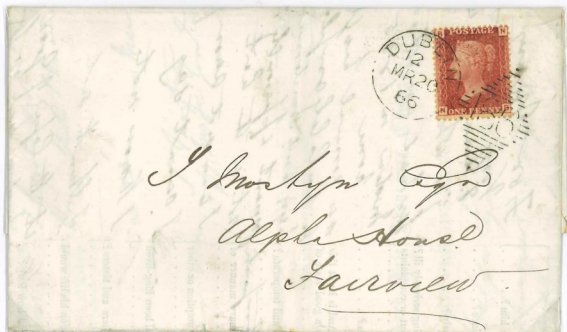 DUBLIN
12
MR20
66
POSTAGE
ONE PENNY
J Mostyn Esqr
Alpha House
Fairview